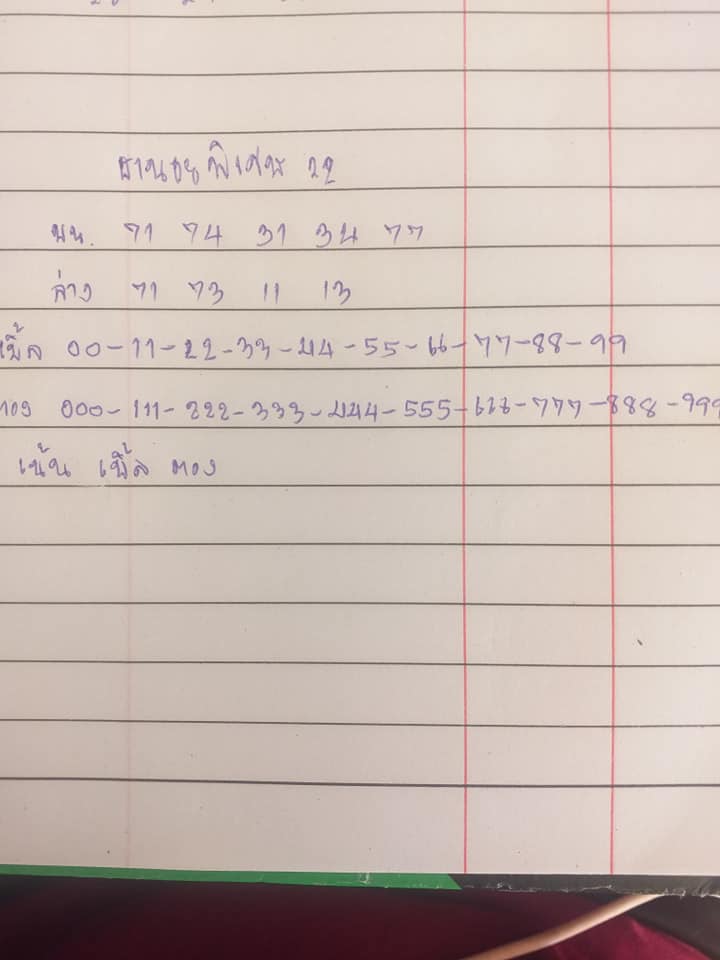 ฮานอยพิเศษ 22
บน. 71 74 31 34 77
ล่าง 71 73 11 13
เบิ้ล 00-11-22-33-44-55-66-77-88-99
ตอง 000-111-222-333-444-555-666-777-888-999
เน้น เบิ้ล ตอง